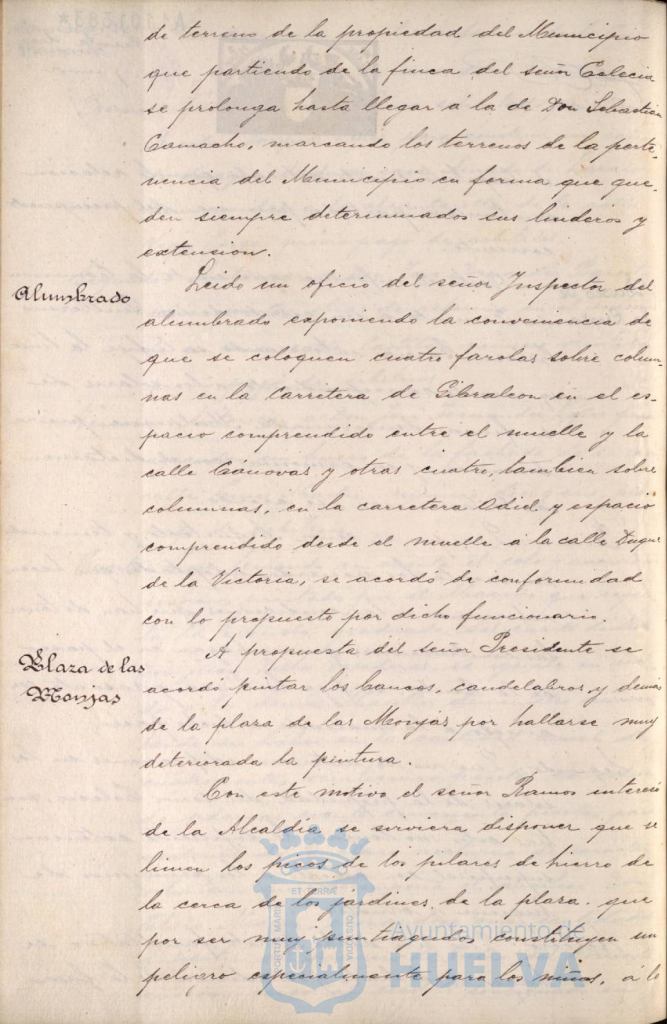 de terreno de la propiedad del Municipio
que partiendo de la finca del señor
se prolonga hasta llegar á la de Don Sebastian
Camacho, marcando los terrenos de la perte-
nencia del Municipio en forma que que-
den siempre determinados sus linderos y
extension.
Alumbrado
Leido un oficio del señor Inspector del
alumbrado exponiendo la conveniencia de
que se coloquen cuatro farolas sobre colum-
nas en la carretera de Gibraleon en el es-
pacio comprendido entre el muelle y la
calle Cánovas y otras cuatro, tambien sobre
columnas, en la carretera Odiel y espacio
comprendido desde el muelle á la calle Duque
de la Victoria, se acordó de conformidad
con lo propuesto por dicho funcionario.
Plaza de las
Monjas
A propuesta del señor Presidente se
acordó pintar los bancos, candelabros y demas
de la plaza de las Monjas por hallarse muy
deteriorada la pintura.
Con este motivo el señor Ramos interesó
de la Alcaldía se sirviera disponer que se
limen los picos de los pilares de hierro de
la cerca de los jardines de la plaza que
por ser muy puntiagudos constituyen un
peligro especialmente para los niños, á lo
ET TERRÆ
PORTUS MARIS
CUSTODIA
Ayuntamiento de
HUELVA